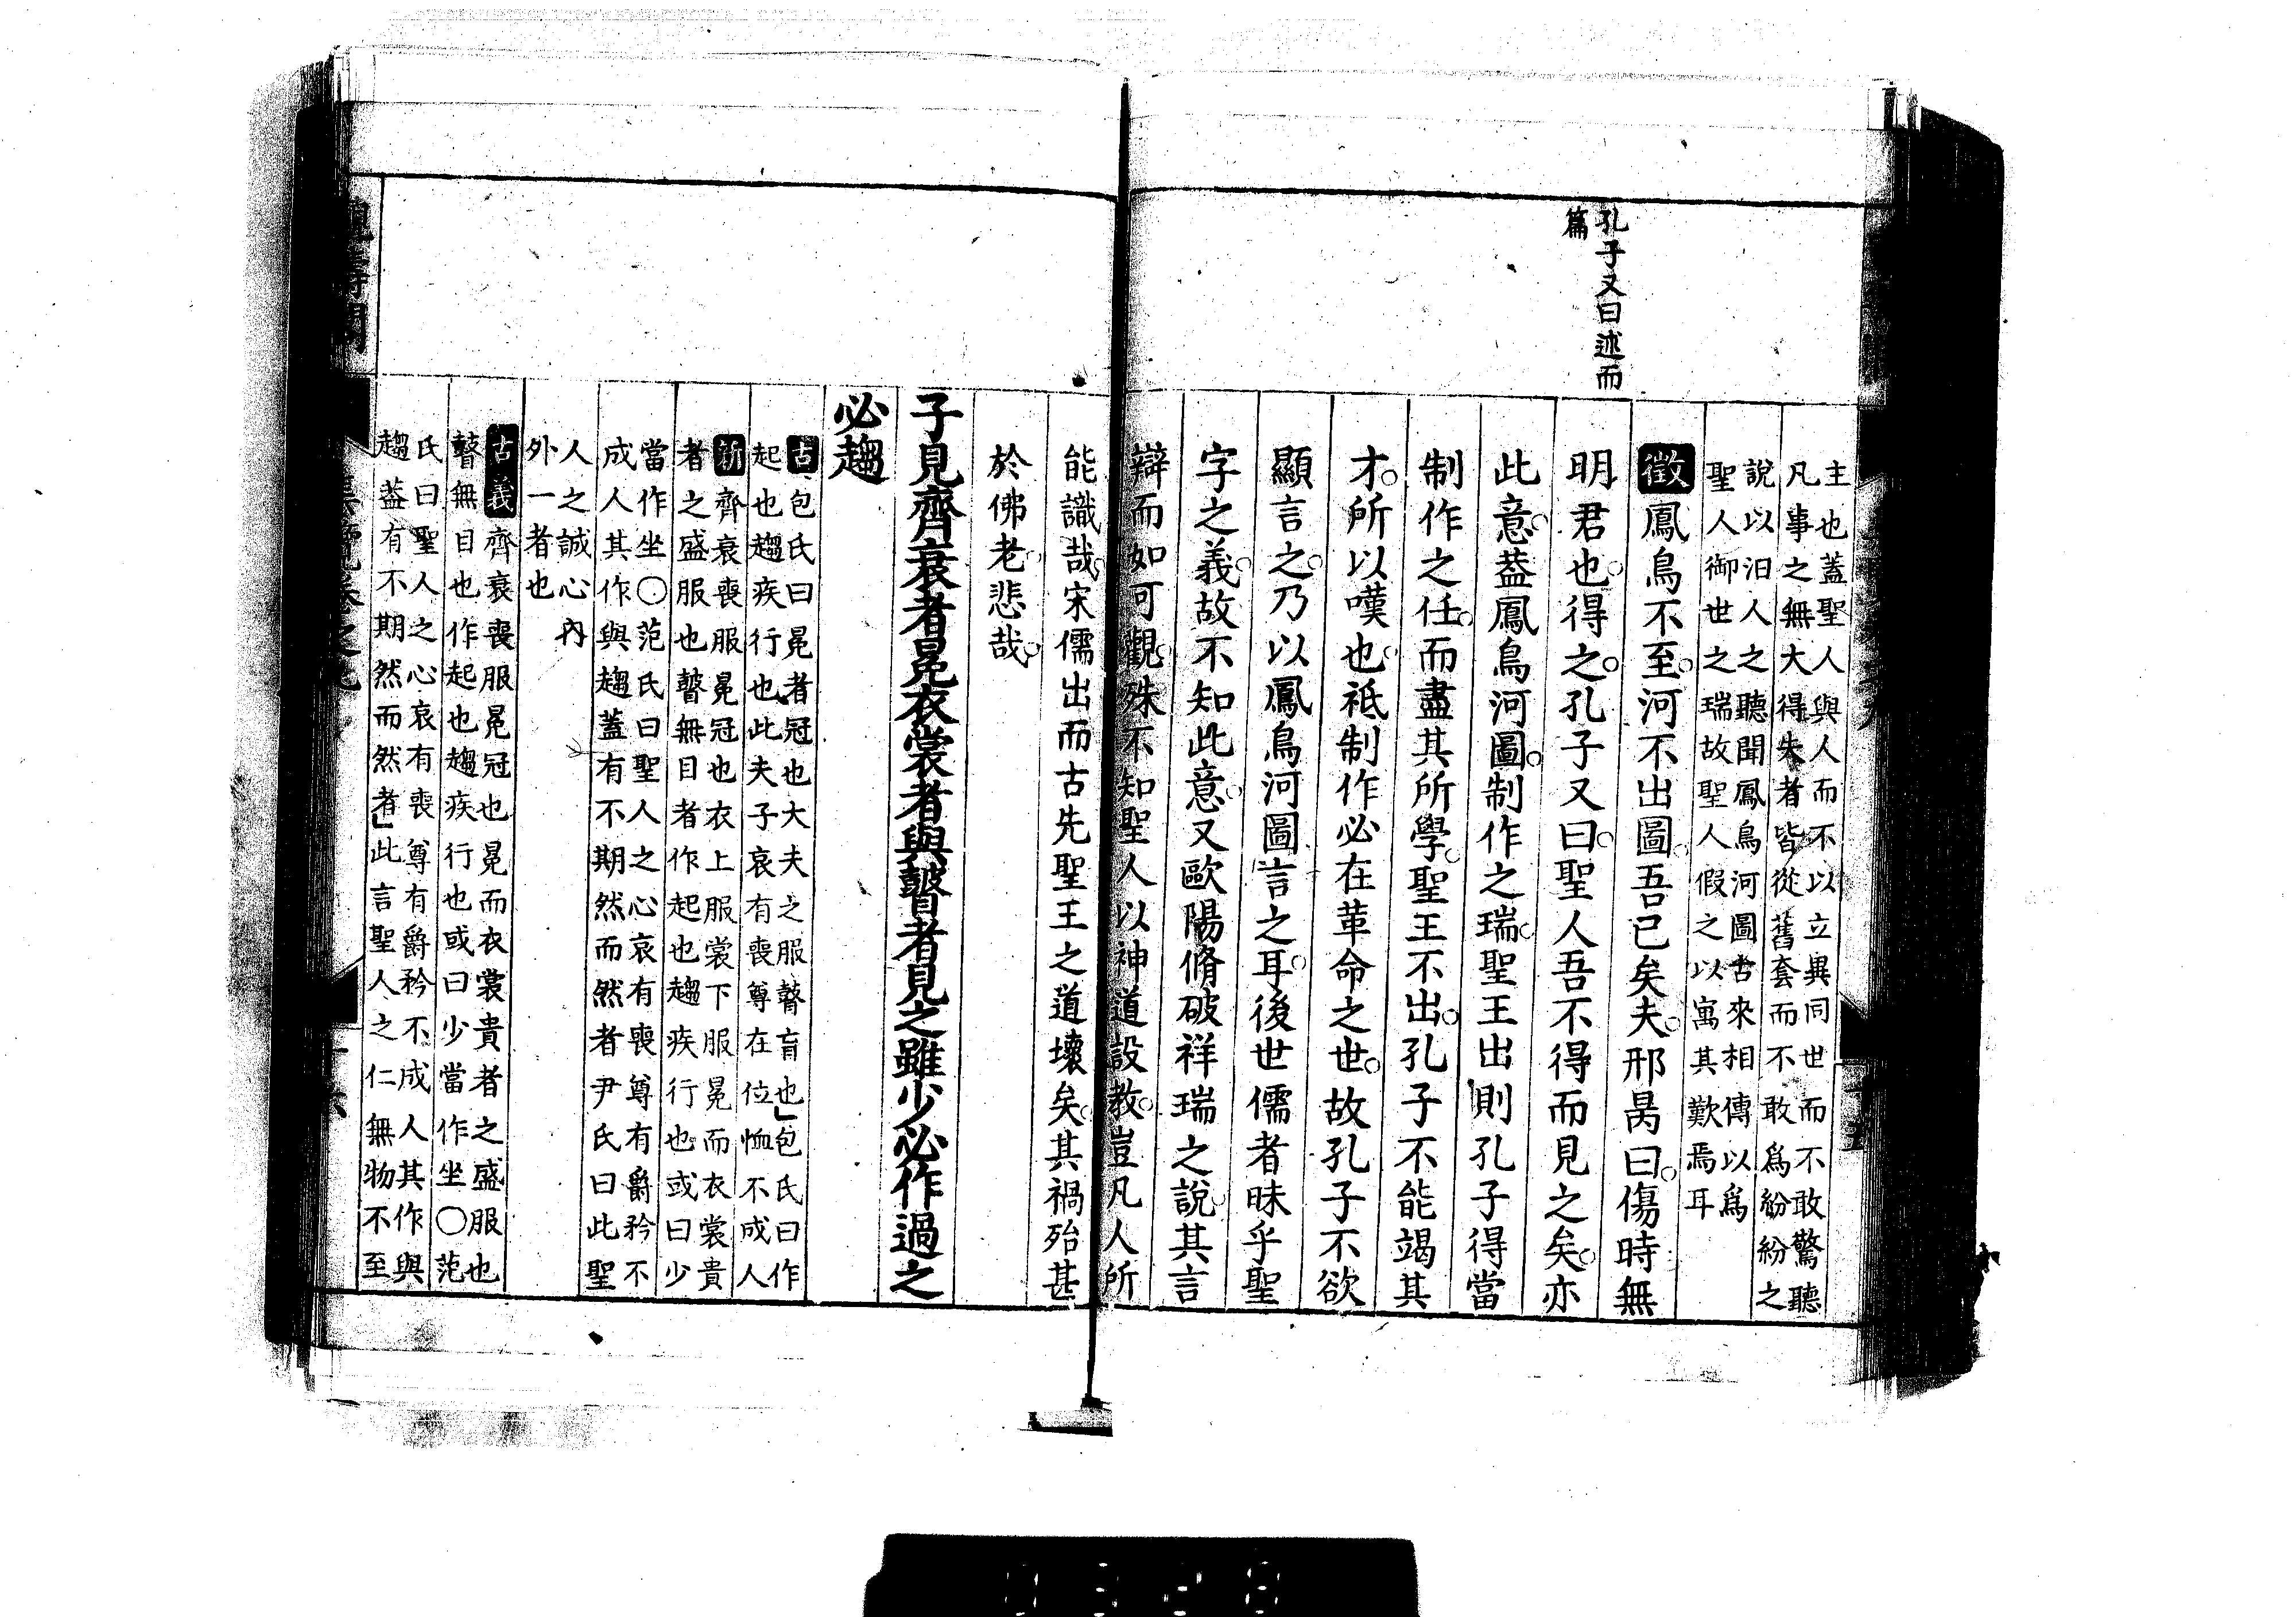 孔子又曰述而
篇
主也蓋聖人與人而不以立異同世而不敢驚聽
凡事之無大得失者皆從舊套而不敢爲紛紛之
說以汨人之聽聞鳳鳥河圖古來相傳以爲
聖人御世之瑞故聖人假之以寓其歎焉耳
徵鳳鳥不至河不出圖吾已矣夫邢昺曰傷時無
明君也得之孔子又曰聖人吾不得而見之矣亦
此意葢鳳鳥河圖制作之瑞聖王出則孔子得當
制作之任而盡其所學聖王不出孔子不能竭其
才所以嘆也祗制作必在革命之世故孔子不欲
顯言之乃以鳳鳥河圖言之耳後世儒者昧乎聖
字之義故不知此意又歐陽脩破祥瑞之說其言
辯而如可觀殊不知聖人以神道設教豈凡人所
能識哉宋儒出而古先聖王之道壞矣其禍殆甚
於佛老悲哉
子見齊衰者冕衣裳者與瞽者見之雖少必作過之
必趨
古包氏曰冕者冠也大夫之服瞽盲也包氏曰作
起也趨疾行也此夫子哀有喪尊在位恤不成人
新齊衰喪服冕冠也衣上服裳下服冕而衣裳貴
者之盛服也瞽無目者作起也趨疾行也或曰少
當作坐○范氏曰聖人之心哀有喪尊有爵矜不
成人其作與趨蓋有不期然而然者尹氏曰此聖
人之誠心內
外一者也
古義齊衰喪服冕冠也冕而衣裳貴者之盛服也
瞽無目也作起也趨疾行也或曰少當作坐○范
氏曰聖人之心哀有喪尊有爵矜不成人其作與
趨葢有不期然而然者此言聖人之仁無物不至